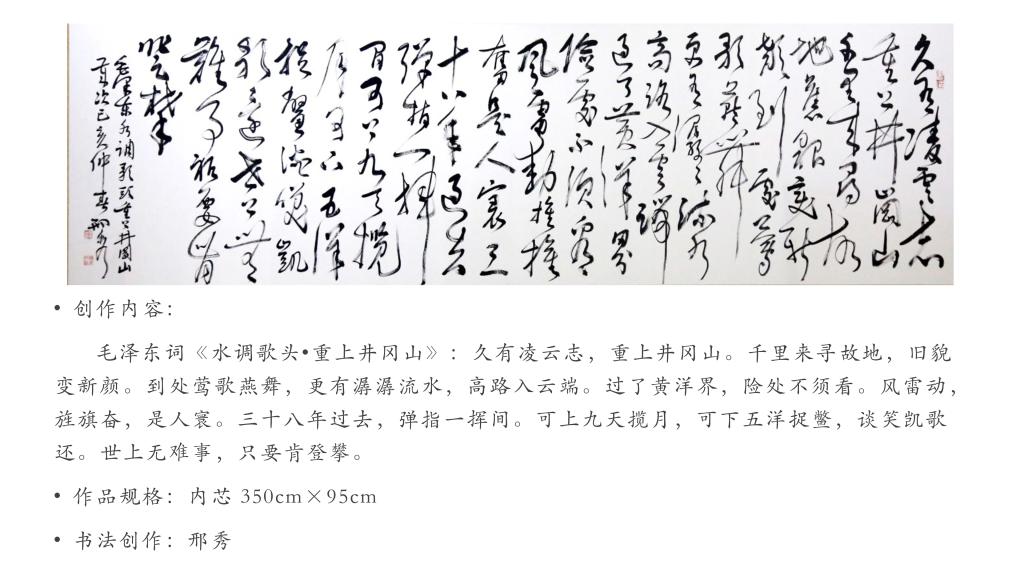 久有凌雲志
重上井岡山
千里来尋故
地舊貌變新
颜到處莺
歌燕舞
更有潺潺流水
高路入雲端
過了黄洋界
險處不須看
風雷動旌旗
奮是人寰三
十八年過去
彈指一揮
間可上九天攬
月可下五洋
捉鱉談笑凱
歌還世上無
難事祇要肯
登攀
毛澤東水调歌頭重上井岡山
歲次己亥仲春邢秀
• 创作内容：
毛泽东词《水调歌头•重上井冈山》：久有凌云志，重上井冈山。千里来寻故地，旧貌
变新颜。到处莺歌燕舞，更有潺潺流水，高路入云端。过了黄洋界，险处不须看。风雷动，
旌旗奋，是人寰。三十八年过去，弹指一挥间。可上九天揽月，可下五洋捉鳖，谈笑凯歌
还。世上无难事，只要肯登攀。
• 作品规格：内芯 350cm×95cm
• 书法创作：邢秀